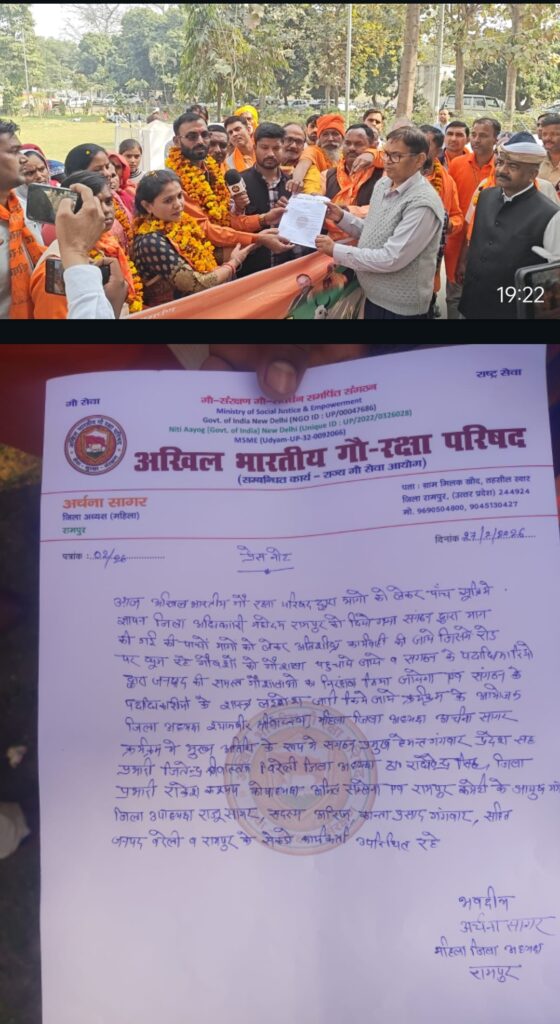 19:22
गौ सेवा
राष्ट्र सेवा
गौ-संरक्षण गौ-संवर्धन समर्पित संगठन
Ministry of Social Justice & Empowerment
Govt. of India New Delhi (NGO ID : UP/00047686)
Niti Aayog (Govt. of India) New Delhi (Unique ID : UP/2022/0326028)
MSME (Udyam-UP-32-0092066)
अखिल भारतीय गौ-रक्षा परिषद
(सम्बन्धित कार्य - राज्य गौ सेवा आयोग)
अर्चना सागर
जिला अध्यक्ष (महिला)
रामपुर
पता : ग्राम मिलक खौद, तहसील स्वार
जिला रामपुर, (उत्तर प्रदेश) 244924
मो. 9690504800, 9045130427
पत्रांक : 02/26
दिनांक 27/2/2026
प्रेस नोट
आज अखिल भारतीय गौ रक्षा परिषद द्वारा मांगो को लेकर पाँच सूत्रिय
ज्ञापन जिला अधिकारी महोदय रामपुर को दिया गया संगठन द्वारा मांग
की गई की पाचों मांगो को लेकर अतिशीघ्र कार्यवाही की जाये जिसमे रोड
पर घूम रहे गौवंशो को गौशाला पहुचाये जाये व संगठन के पदाधिकारियो
द्वारा जनपद की समस्त गौशालाओ का निरक्षण किया जायेगा एवं संगठन के
पदाधिकारीयो के शस्त्र लाइसेंस जारी किये जाये कार्यक्रम के आयोजक
जिला अध्यक्ष श्यामवीर महिला जिला अध्यक्ष अर्चना सागर
कार्यक्रम मे मुख्य अतिथि के रूप मे संगठन प्रमुख हेमन्त गंगवार प्रदेश सह
प्रभारी जितेन्द्र बरेली जिला अध्यक्ष डा० सिंह, जिला
प्रभारी राकेश कश्यप अनिल सक्सेना एवं रामपुर कमेटी के
जिला उपाध्यक्ष राजू सागर, सदस्य कान्ता प्रसाद गंगवार, सहित
जनपद बरेली व रामपुर के सैकडो कार्यकर्ता उपस्थित रहे
भवदीय
अर्चना सागर
महिला जिला अध्यक्ष
रामपुर